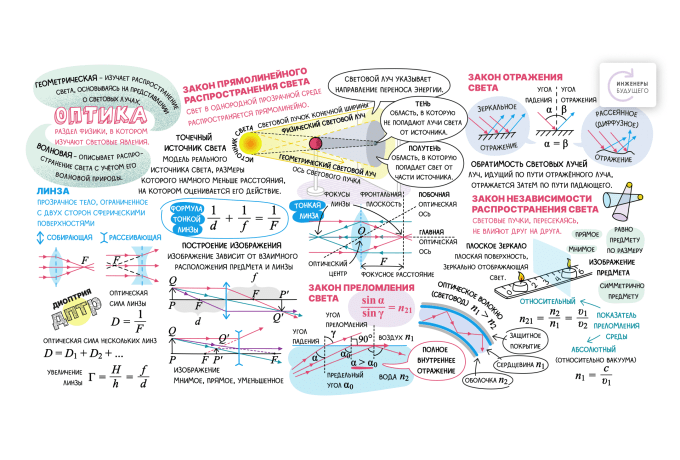 ГЕОМЕТРИЧЕСКАЯ – ИЗУЧАЕТ РАСПРОСТРАНЕНИЕ
СВЕТА, ОСНОВЫВАЯСЬ НА ПРЕДСТАВЛЕНИИ
О СВЕТОВЫХ ЛУЧАХ.
ОПТИКА
РАЗДЕЛ ФИЗИКИ, В КОТОРОМ
ИЗУЧАЮТ СВЕТОВЫЕ ЯВЛЕНИЯ.
ВОЛНОВАЯ – ОПИСЫВАЕТ РАСПРО-
СТРАНЕНИЕ СВЕТА С УЧЁТОМ ЕГО
ВОЛНОВОЙ ПРИРОДЫ.
ЗАКОН ПРЯМОЛИНЕЙНОГО
РАСПРОСТРАНЕНИЯ СВЕТА
СВЕТ В ОДНОРОДНОЙ ПРОЗРАЧНОЙ СРЕДЕ
РАСПРОСТРАНЯЕТСЯ ПРЯМОЛИНЕЙНО.
ТОЧЕЧНЫЙ
ИСТОЧНИК СВЕТА
МОДЕЛЬ РЕАЛЬНОГО
ИСТОЧНИКА СВЕТА, РАЗМЕРЫ
КОТОРОГО НАМНОГО МЕНЬШЕ РАССТОЯНИЯ,
НА КОТОРОМ ОЦЕНИВАЕТСЯ ЕГО ДЕЙСТВИЕ.
ИСТОЧНИК СВЕТА
СВЕТОВОЙ ПУЧОК КОНЕЧНОЙ ШИРИНЫ
ФИЗИЧЕСКИЙ СВЕТОВОЙ ЛУЧ
ГЕОМЕТРИЧЕСКИЙ СВЕТОВОЙ ЛУЧ
ОСЬ СВЕТОВОГО ПУЧКА
СВЕТОВОЙ ЛУЧ УКАЗЫВАЕТ
НАПРАВЛЕНИЕ ПЕРЕНОСА ЭНЕРГИИ.
ТЕНЬ
ОБЛАСТЬ, В КОТОРУЮ
НЕ ПОПАДАЮТ ЛУЧИ СВЕТА
ОТ ИСТОЧНИКА.
ПОЛУТЕНЬ
ОБЛАСТЬ, В КОТОРУЮ
ПОПАДАЕТ СВЕТ ОТ
ЧАСТИ ИСТОЧНИКА.
ЗАКОН ОТРАЖЕНИЯ
СВЕТА
УГОЛ ПАДЕНИЯ
УГОЛ ОТРАЖЕНИЯ
α β
α = β
ЗЕРКАЛЬНОЕ
ОТРАЖЕНИЕ
РАССЕЯННОЕ
(ДИФФУЗНОЕ)
ОТРАЖЕНИЕ
ИНЖЕНЕРЫ
БУДУЩЕГО
ОБРАТИМОСТЬ СВЕТОВЫХ ЛУЧЕЙ
ЛУЧ, ИДУЩИЙ ПО ПУТИ ОТРАЖЁННОГО ЛУЧА,
ОТРАЖАЕТСЯ ЗАТЕМ ПО ПУТИ ПАДАЮЩЕГО.
ЗАКОН НЕЗАВИСИМОСТИ
РАСПРОСТРАНЕНИЯ СВЕТА
СВЕТОВЫЕ ПУЧКИ, ПЕРЕСЕКАЯСЬ,
НЕ ВЛИЯЮТ ДРУГ НА ДРУГА.
ЛИНЗА
ПРОЗРАЧНОЕ ТЕЛО, ОГРАНИЧЕННОЕ
С ДВУХ СТОРОН СФЕРИЧЕСКИМИ
ПОВЕРХНОСТЯМИ
СОБИРАЮЩАЯ
РАССЕИВАЮЩАЯ
F
F
ДИОПТРИЯ
ДПТР
ОПТИЧЕСКАЯ
СИЛА ЛИНЗЫ
D = 1/F
ОПТИЧЕСКАЯ СИЛА НЕСКОЛЬКИХ ЛИНЗ
D = D₁ + D₂ + ...
УВЕЛИЧЕНИЕ
ЛИНЗЫ
Γ = H/h = f/d
ФОРМУЛА
ТОНКОЙ
ЛИНЗЫ
1/d + 1/f = 1/F
ПОСТРОЕНИЕ ИЗОБРАЖЕНИЯ
ИЗОБРАЖЕНИЕ ЗАВИСИТ ОТ ВЗАИМНОГО
РАСПОЛОЖЕНИЯ ПРЕДМЕТА И ЛИНЗЫ
Q
f
P
F
P'
d
Q'
Q
Q'
P
F P'
ИЗОБРАЖЕНИЕ
МНИМОЕ, ПРЯМОЕ, УМЕНЬШЕННОЕ
ТОНКАЯ
ЛИНЗА
ФОКУСЫ
ЛИНЗЫ
ФРОНТАЛЬНАЯ
ПЛОСКОСТЬ
ПОБОЧНАЯ
ОПТИЧЕСКАЯ
ОСЬ
ГЛАВНАЯ
ОПТИЧЕСКАЯ
ОСЬ
O
F
ОПТИЧЕСКИЙ
ЦЕНТР
ФОКУСНОЕ РАССТОЯНИЕ
ЗАКОН ПРЕЛОМЛЕНИЯ
СВЕТА
sin α / sin γ = n₂₁
УГОЛ
ПРЕЛОМЛЕНИЯ
УГОЛ
ПАДЕНИЯ
90°
ВОЗДУХ n₁
α
α₀
α > α₀
ПРЕДЕЛЬНЫЙ
УГОЛ α₀
ВОДА n₂
ПОЛНОЕ
ВНУТРЕННЕЕ
ОТРАЖЕНИЕ
ОПТИЧЕСКОЕ ВОЛОКНО
(СВЕТОВОД) n₁ > n₂
ЗАЩИТНОЕ
ПОКРЫТИЕ
СЕРДЦЕВИНА n₁
ОБОЛОЧКА n₂
ПЛОСКОЕ ЗЕРКАЛО
ПЛОСКАЯ ПОВЕРХНОСТЬ,
ЗЕРКАЛЬНО ОТРАЖАЮЩАЯ
СВЕТ.
ПРЯМОЕ
МНИМОЕ
РАВНО
ПРЕДМЕТУ
ПО РАЗМЕРУ
ИЗОБРАЖЕНИЕ
ПРЕДМЕТА
СИММЕТРИЧНО
ПРЕДМЕТУ
ОТНОСИТЕЛЬНЫЙ
n₂₁ = n₂/n₁ = υ₁/υ₂
ПОКАЗАТЕЛЬ
ПРЕЛОМЛЕНИЯ
СРЕДЫ
АБСОЛЮТНЫЙ
(ОТНОСИТЕЛЬНО ВАКУУМА)
n₁ = c/υ₁